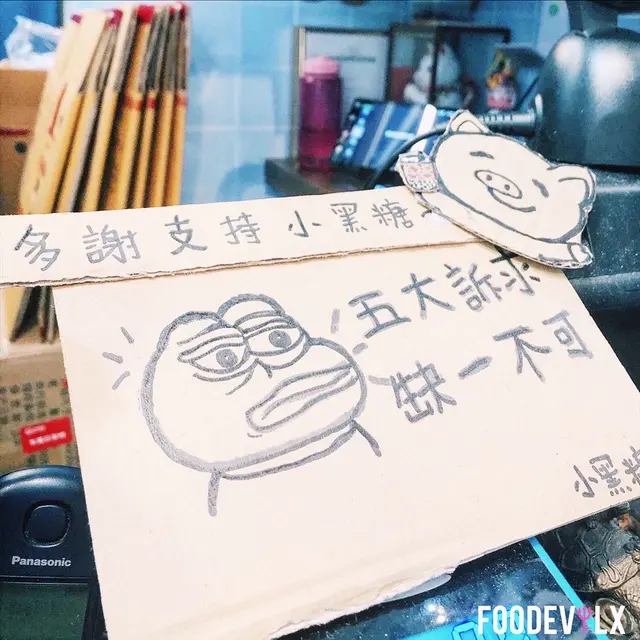 多謝支持小黑糖
五大訴求
缺一不可
小黑糖
Panasonic
FOODEVILX